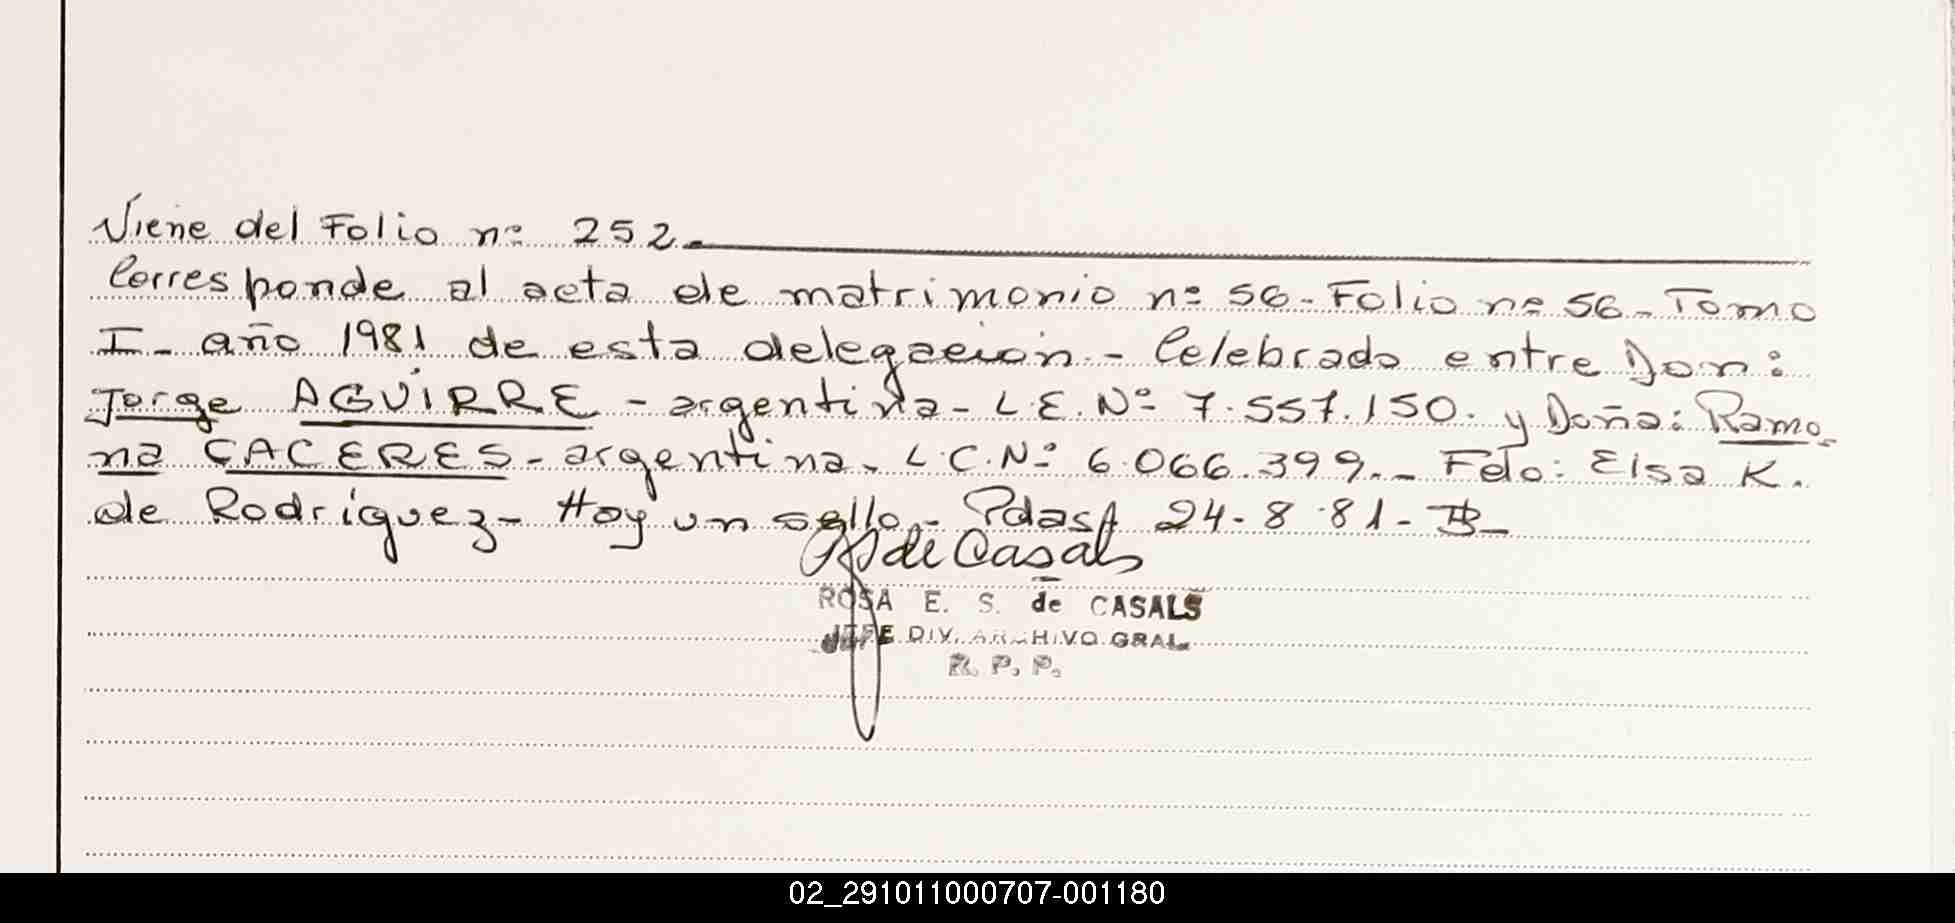 Viene del Folio nº 252.
Corresponde al acta de matrimonio nº 56 - Folio nº 56 - Tomo
I - año 1981 de esta delegacion - Celebrado entre Don:
Jorge AGUIRRE - argentina - L.E. Nº 7.557.150. y Doña: Ramo-
na CACERES - argentina. L.C. Nº 6.066.399. - Fdo: Elsa K.
de Rodriguez - Hay un sello. - Pdas 24-8-81 -
de Casals
ROSA E. S. de CASALS
JEFE DIV. ARCHIVO GRAL.
R. P. P.
02_291011000707-001180